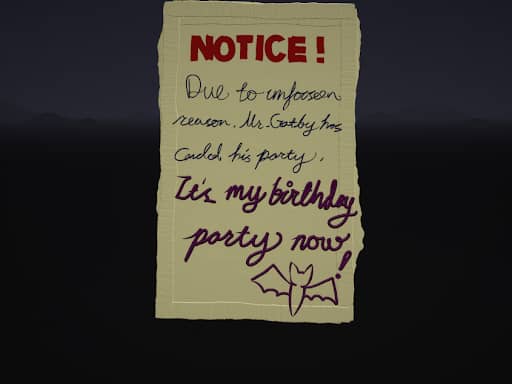 NOTICE!
Due to unforseen
reason. Mr. Gatby has
his party.
It's my birthday
party now!